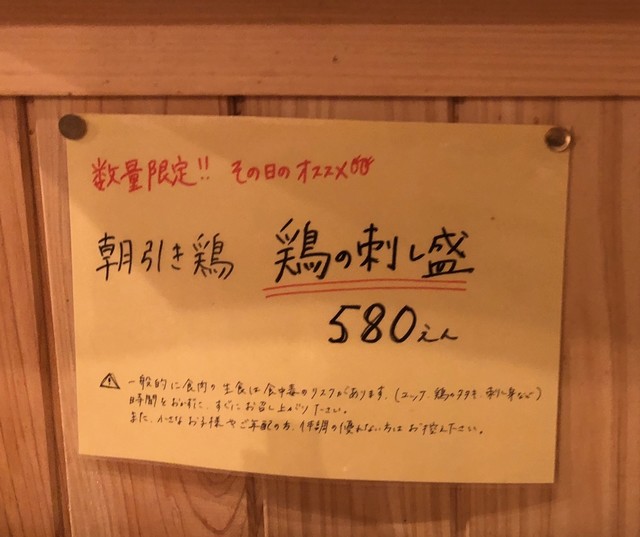 数量限定!! その日のオススメ
朝引き鶏 鶏の刺し盛
580えん
⚠ 一般的に食肉の生食は食中毒のリスクがあります。(ユッケ、鶏のタタキ、刺し身など)
時間をおかずに、すぐにお召し上がり下さい。
また、小さなお子様やご年配の方、体調の優れない方はお控え下さい。